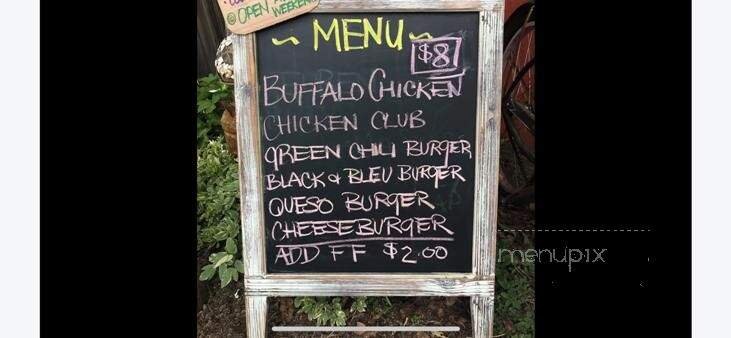 @ OPEN
WEEKEN
~ MENU ~
$8
BUFFALO CHICKEN
CHICKEN CLUB
GREEN CHILI BURGER
BLACK & BLEU BURGER
QUESO BURGER
CHEESEBURGER
ADD FF $2.00
menupix